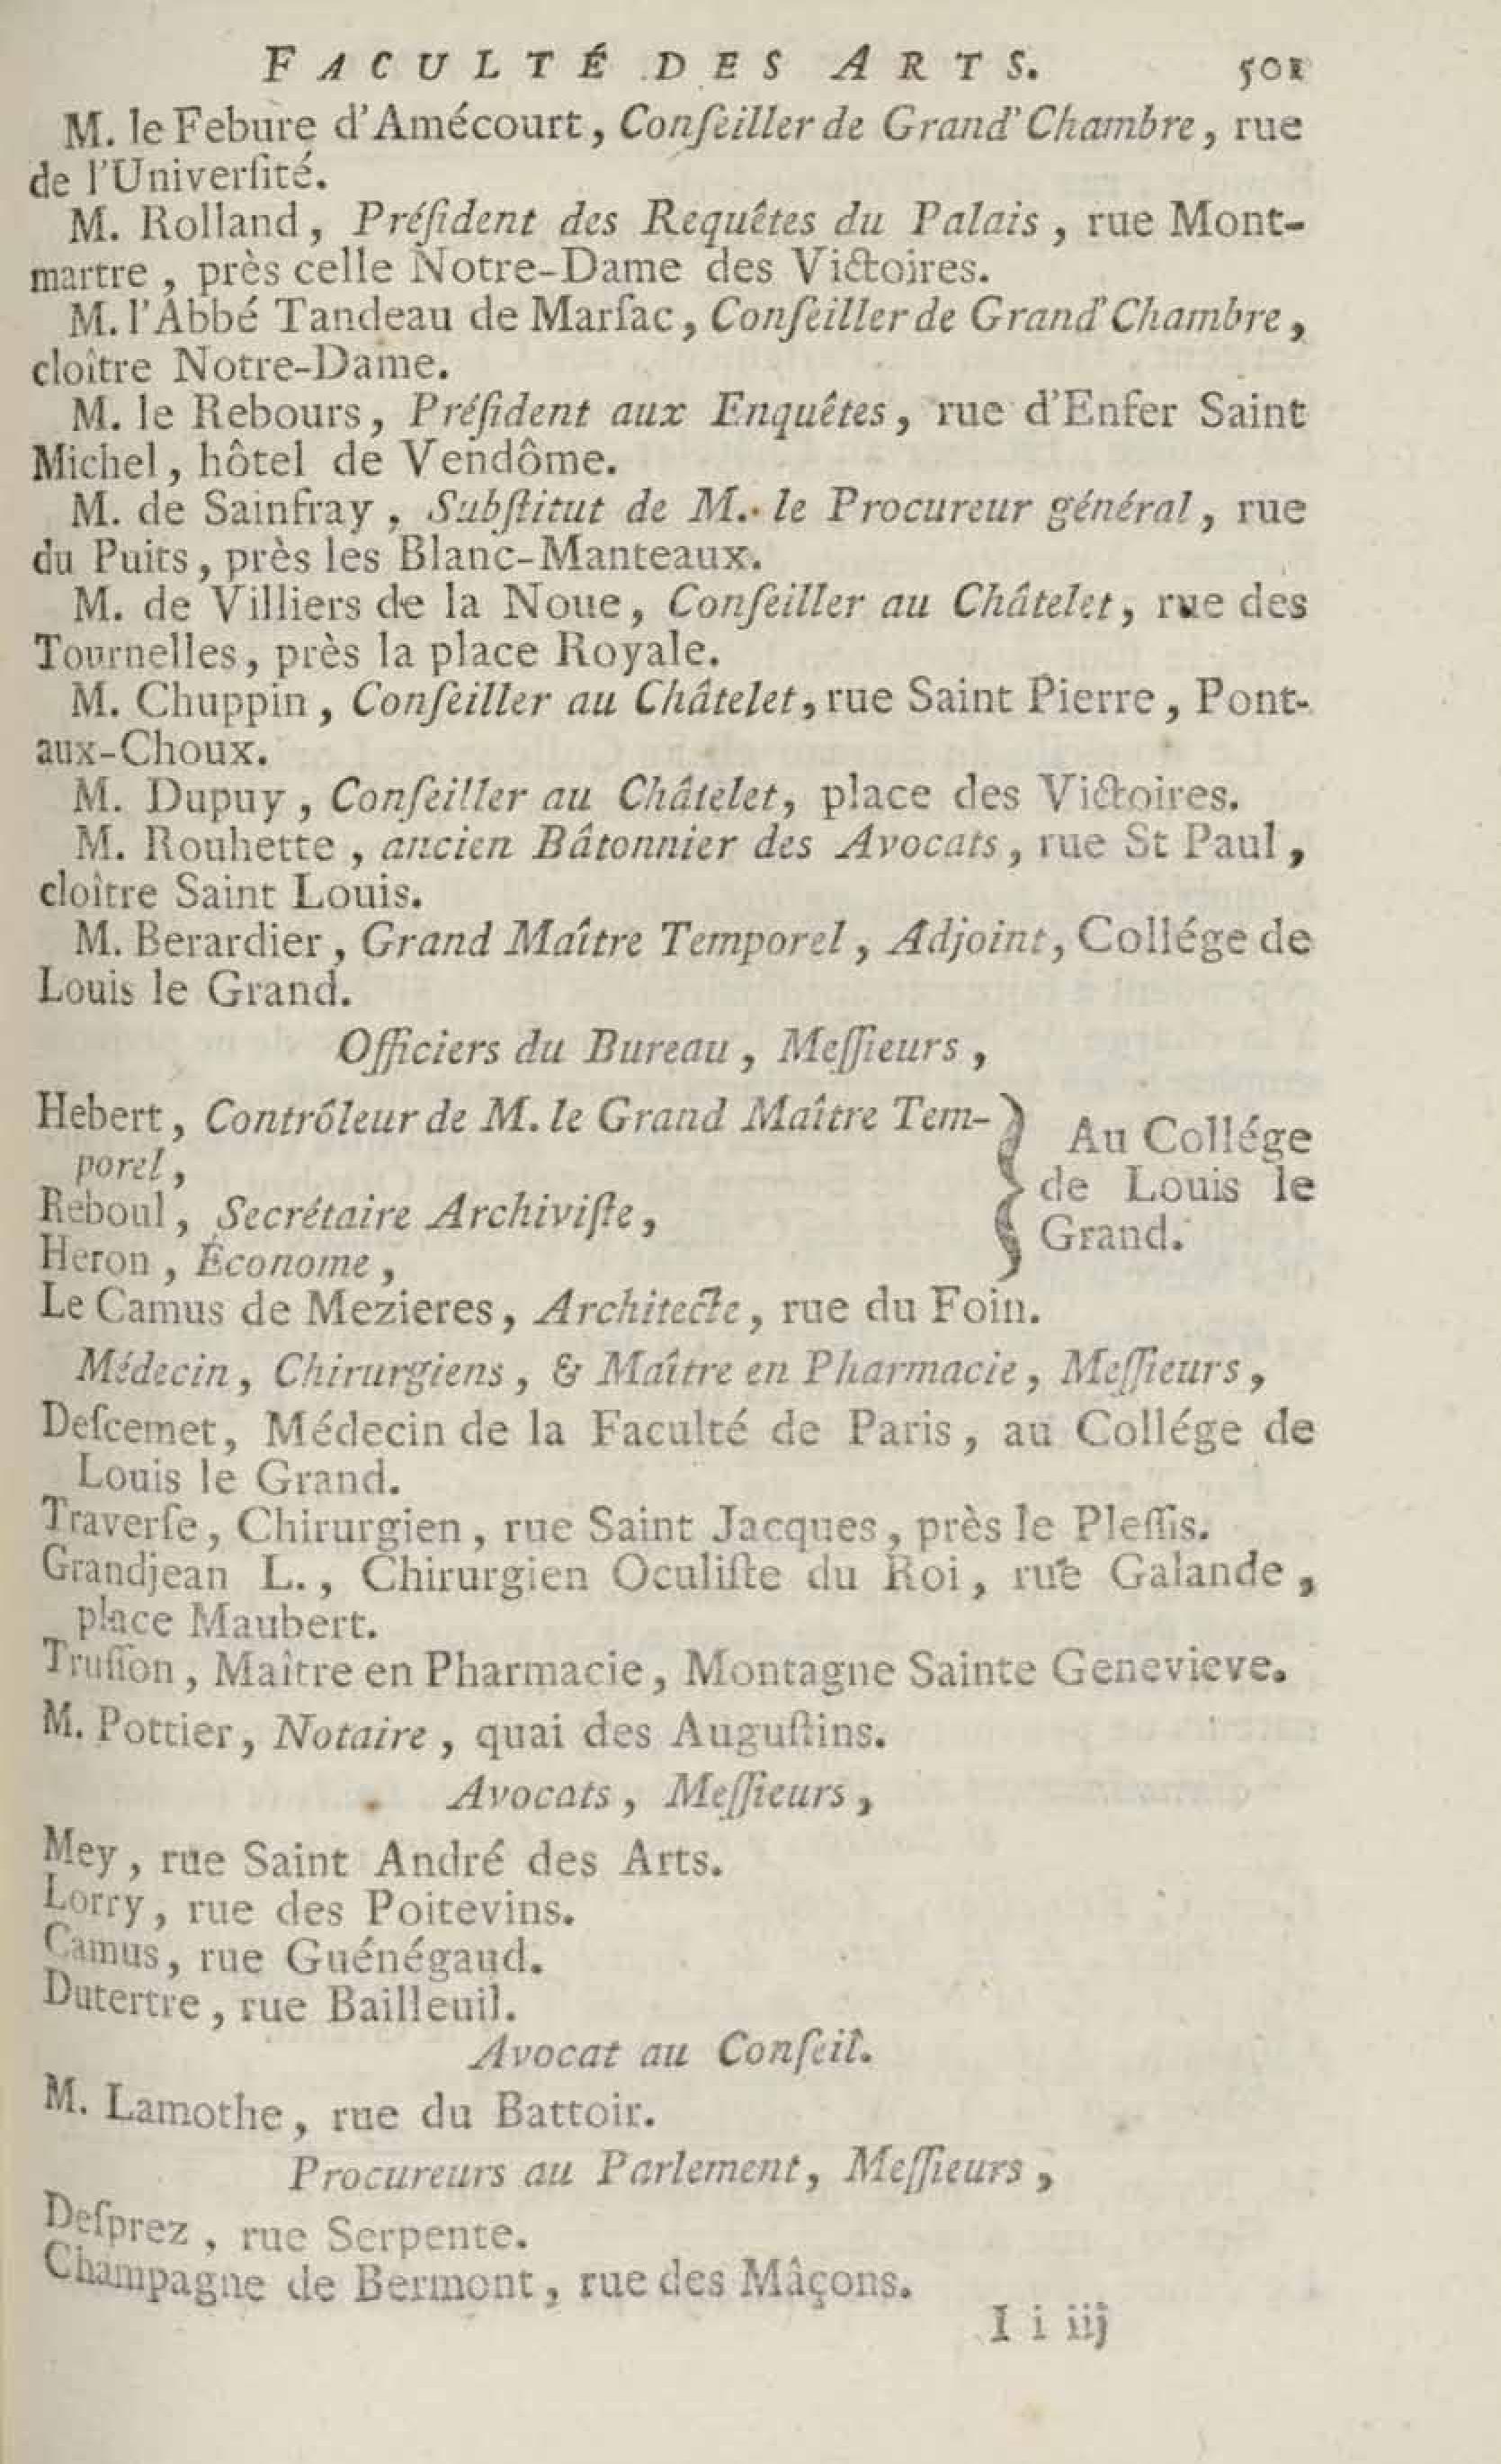 FACULTÉ DES ARTS. 501
M. le Febure d'Amécourt, Conſeiller de Grand'Chambre, rue
de l'Univerſité.
M. Rolland, Préſident des Requêtes du Palais, rue Mont-
martre, près celle Notre-Dame des Victoires.
M. l'Abbé Tandeau de Marſac, Conſeiller de Grand'Chambre,
cloître Notre-Dame.
M. le Rebours, Préſident aux Enquêtes, rue d'Enfer Saint
Michel, hôtel de Vendôme.
M. de Sainfray, Subſtitut de M. le Procureur général, rue
du Puits, près les Blanc-Manteaux.
M. de Villiers de la Noue, Conſeiller au Châtelet, rue des
Tournelles, près la place Royale.
M. Chuppin, Conſeiller au Châtelet, rue Saint Pierre, Pont-
aux-Choux.
M. Dupuy, Conſeiller au Châtelet, place des Victoires.
M. Rouhette, ancien Bâtonnier des Avocats, rue St Paul,
cloître Saint Louis.
M. Berardier, Grand Maître Temporel, Adjoint, Collége de
Louis le Grand.
Officiers du Bureau, Meſſieurs,
Hebert, Contrôleur de M. le Grand Maître Tem-
porel,
Reboul, Secrétaire Archiviſte,
Heron, Économe,
Au Collége
de Louis le
Grand.
Le Camus de Mezieres, Architecte, rue du Foin.
Médecin, Chirurgiens, & Maître en Pharmacie, Meſſieurs,
Deſcemet, Médecin de la Faculté de Paris, au Collége de
Louis le Grand.
Traverſe, Chirurgien, rue Saint Jacques, près le Pleſſis.
Grandjean L., Chirurgien Oculiſte du Roi, rue Galande,
place Maubert.
Truſſon, Maître en Pharmacie, Montagne Sainte Genevieve.
M. Pottier, Notaire, quai des Auguſtins.
Avocats, Meſſieurs,
Mey, rue Saint André des Arts.
Lorry, rue des Poitevins.
Camus, rue Guénégaud.
Dutertre, rue Bailleuil.
Avocat au Conſeil.
M. Lamothe, rue du Battoir.
Procureurs au Parlement, Meſſieurs,
Deſprez, rue Serpente.
Champagne de Bermont, rue des Mâçons.
I i iij